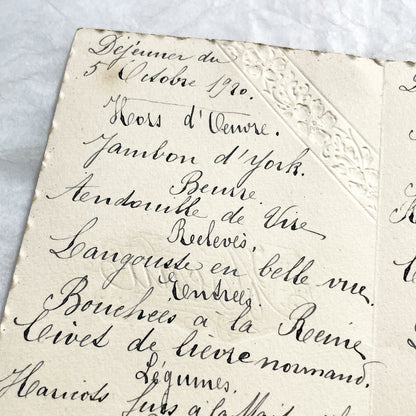 Déjeuner du
5 Octobre 1920.
Hors d'Œuvre.
Jambon d'York.
Beurre.
Andouille de Vire
Relevés.
Langouste en belle vue.
Entrée.
Bouchées à la Reine
Cives de lièvre normand.
Légumes.
Haricots fins à la